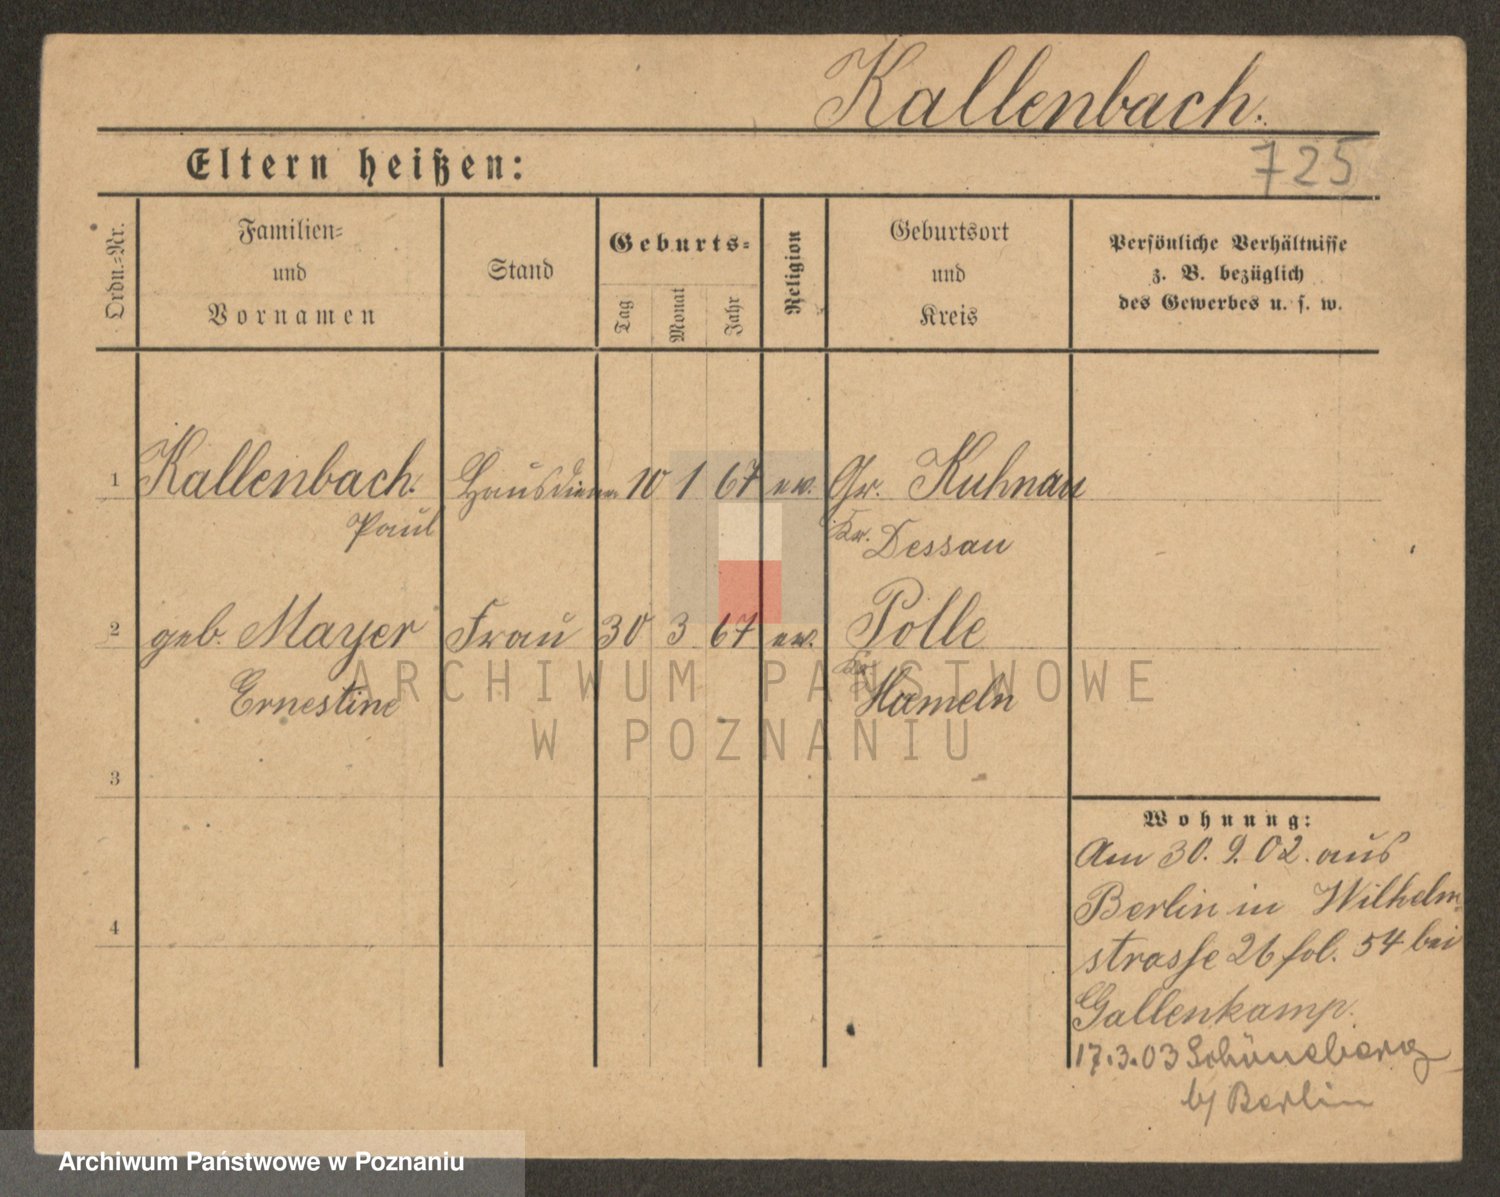 Kallenbach.
Eltern heißen:
725
Ordn.-Nr.
Familien-
und
Vornamen
Stand
Geburts-
Tag
Monat
Jahr
Religion
Geburtsort
und
Kreis
Persönliche Verhältnisse
z. B. bezüglich
des Gewerbes u. s. w.
1 Kallenbach. Hausdiener 10 1 67 ev. Gr. Kuhnau
Paul Kr. Dessau
2 geb. Mayer Frau 30 3 67 ev. Polle
Kr.
Ernestine Hameln
ARCHIWUM PAŃSTWOWE
W POZNANIU
3
Wohnung:
Am 30. 9. 02. aus
Berlin in Wilhelm-
4
strasse 26 fol. 54 bei
Gallenkamp.
17.3.03 Schöneberg
b/ Berlin
Archiwum Państwowe w Poznaniu